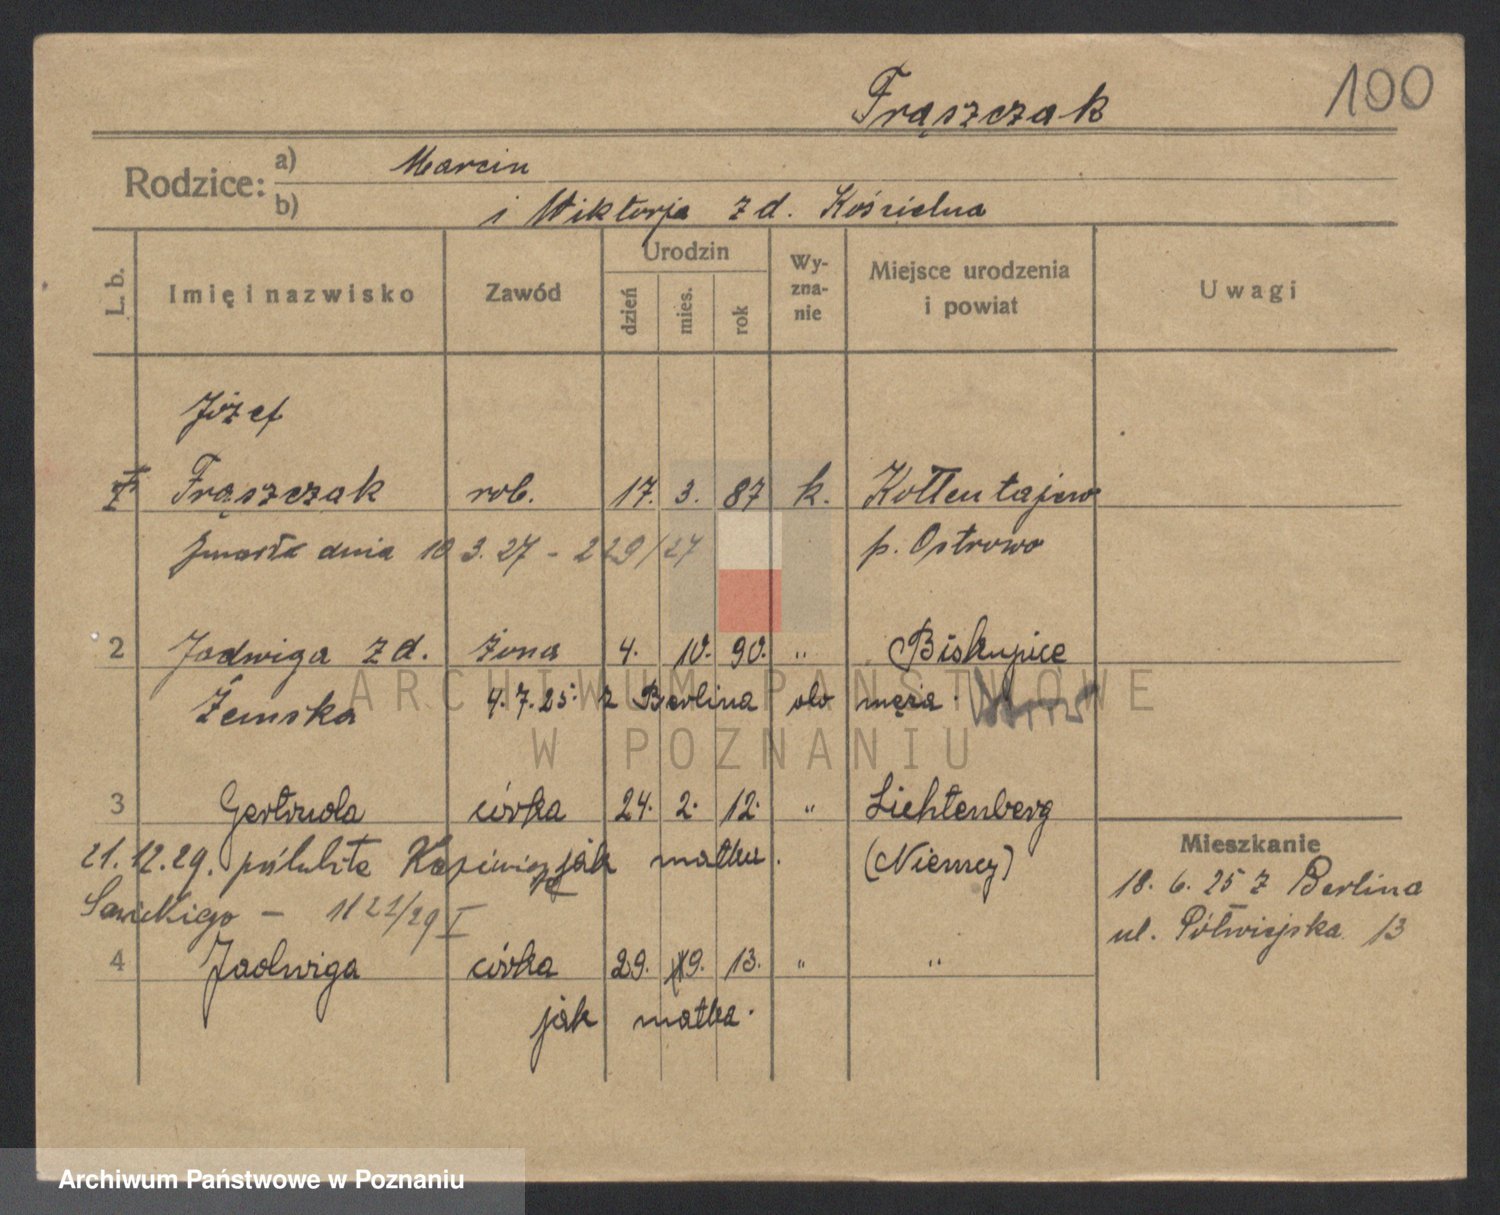 Frąszczak 100
Rodzice: a) Marcin
b) i Wiktorja z d. Kościelna
L. b. Imię i nazwisko Zawód Urodzin dzień mies. rok Wyznanie Miejsce urodzenia i powiat Uwagi
Józef
1 Frąszczak rob. 17. 3. 87 k. Kottentajew
zmarł dnia 10 3. 27 - 229/27 p. Ostrowo
2 Jadwiga z d. żona 4. 10. 90. " Biskupice
Żemska 4. 7. 25. z Berlina do męża.
3 Gertruda córka 24. 2. 12. " Lichtenberg
21. 12. 29. poślubiła Kazimierza jak matka. (Niemcy)
Sawickiego - 1121/29 I
4 Jadwiga córka 29. 9. 13. " "
jak matka.
Mieszkanie
18. 6. 25 z Berlina
ul. Półwiejska 13
ARCHIWUM PAŃSTWOWE
W POZNANIU
Archiwum Państwowe w Poznaniu